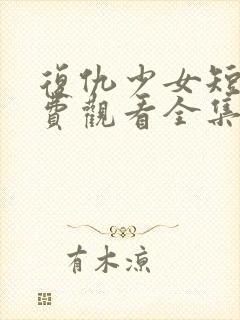 復仇少女短
費觀看全集
有木涼